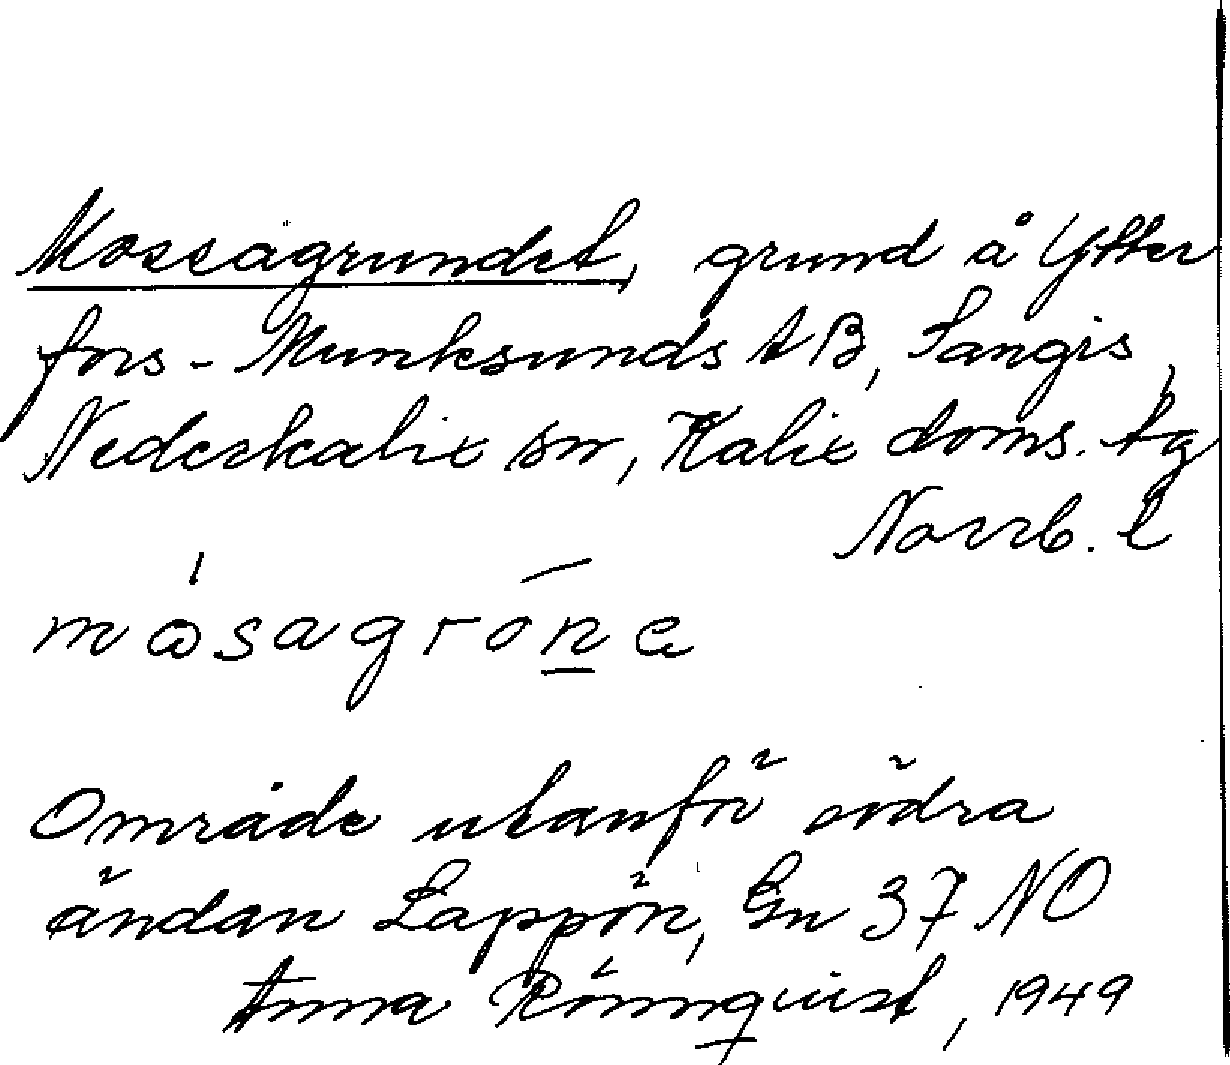 Mossagrundet, grund å Ytter
fors - Munksunds AB, Sangis,
Nederkalix sn, Kalix doms. tg
Norrb. l
måsagróne
Område utanför södra
ändan Lappön, Gn 37 NO
Anna Rönnqvist, 1949